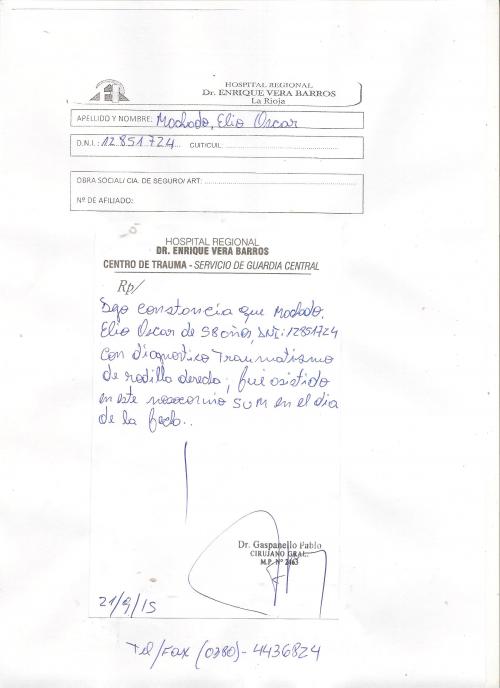 HOSPITAL REGIONAL
Dr. ENRIQUE VERA BARROS
La Rioja
APELLIDO Y NOMBRE: Machado, Elio Oscar
D.N.I.: 12.851.724 CUIT/CUIL:
OBRA SOCIAL/ CIA. DE SEGURO/ ART:
Nº DE AFILIADO:
HOSPITAL REGIONAL
DR. ENRIQUE VERA BARROS
CENTRO DE TRAUMA - SERVICIO DE GUARDIA CENTRAL
Rp/
Dejo constancia que Machado.
Elio Oscar de 58 años, DNI: 12851724
con diagnostico Traumatismo
de rodilla derecha, fue asistido
en este nosocomio en el dia
de la fecha..
Dr. Gaspanello Pablo
CIRUJANO GRAL.
M.P. Nº 2463
21/9/15
Tel/Fax (0380)- 4436824